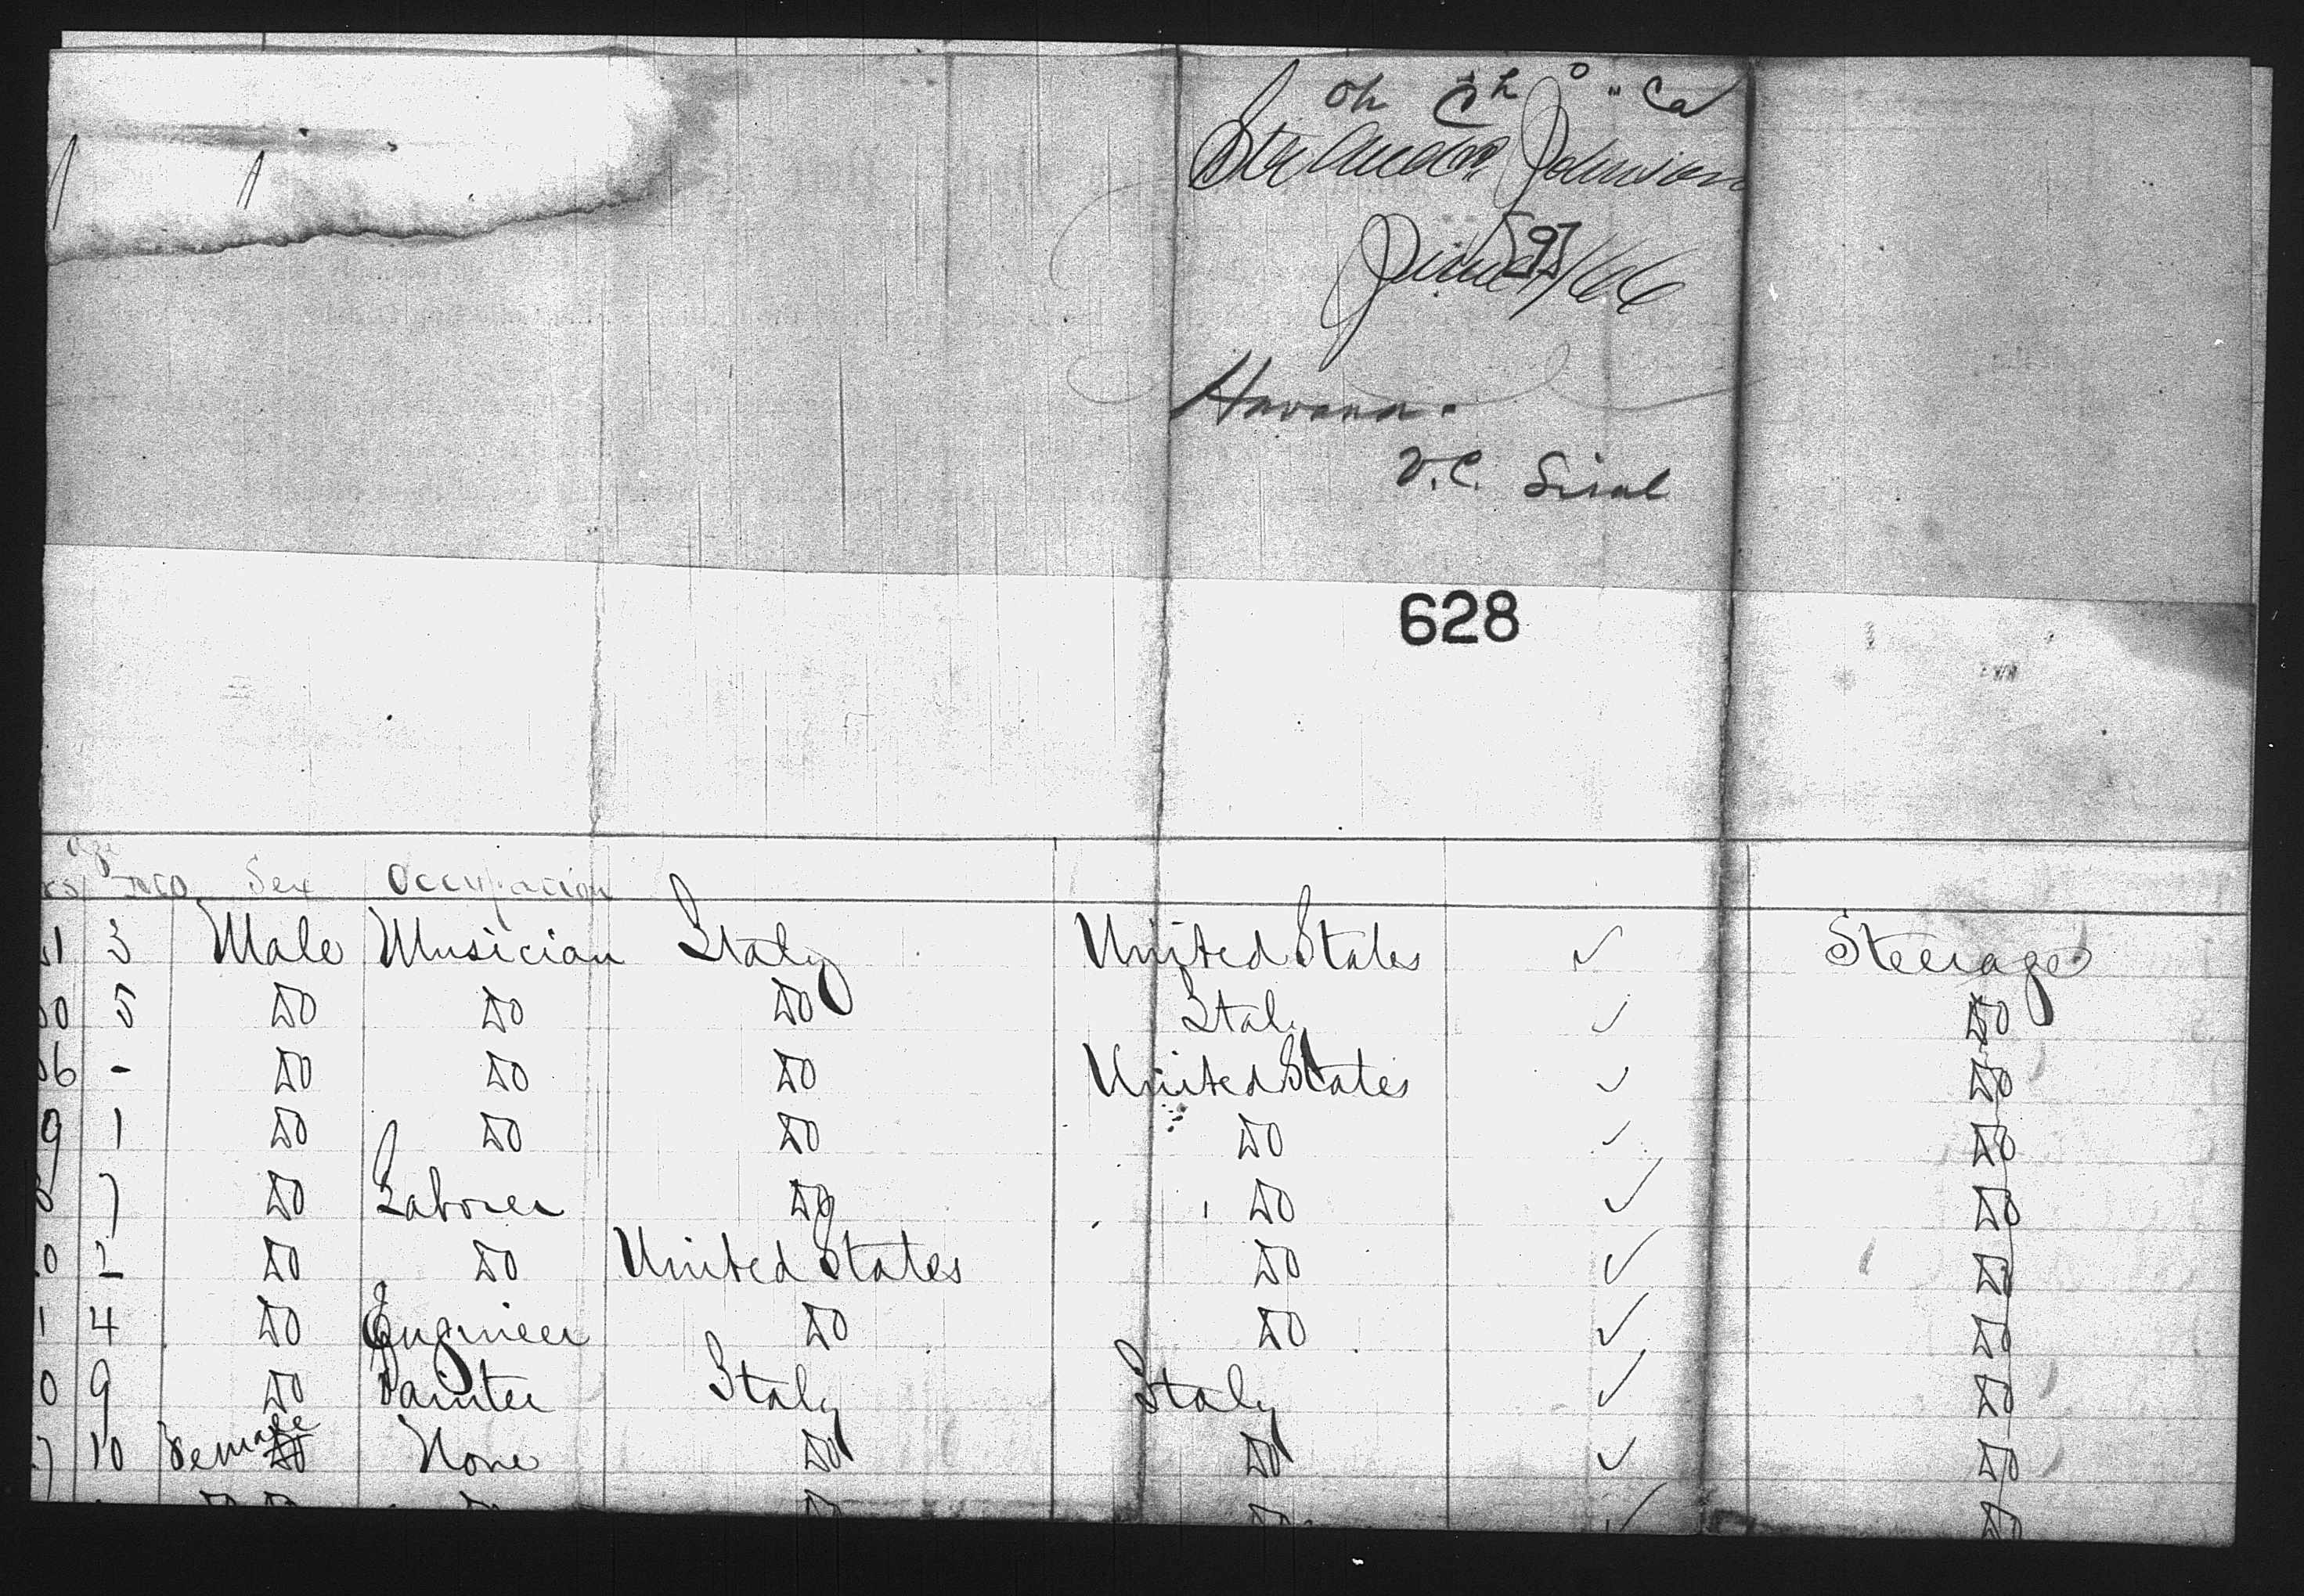 Str Andrew Johnson
593
June 27/66
Havana.
V.C. Sisal
628
Age
Sex Occupation
1 3 Male Musician Italy United States ✓ Steerage
0 5 Do Do Do Italy ✓ Do
6 - Do Do Do United States ✓ Do
9 1 Do Do Do Do ✓ Do
7 Do Laborer Do Do ✓ Do
0 2 Do Do United States Do ✓ Do
1 4 Do Engineer Do Do ✓ Do
0 9 Do Painter Italy Italy ✓ Do
10 Female None Do Do ✓ Do